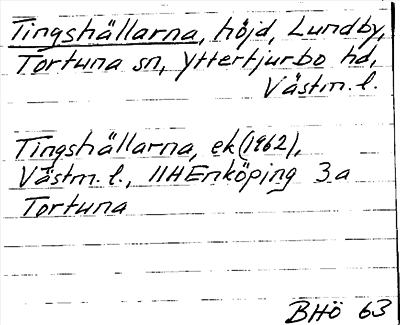 Tingshällarna, höjd, Lundby,
Tortuna sn, Yttertjurbo hd,
Västm. l.
Tingshällarna, ek (1962),
Västm. l., 11H Enköping 3a
Tortuna
BHÖ 63